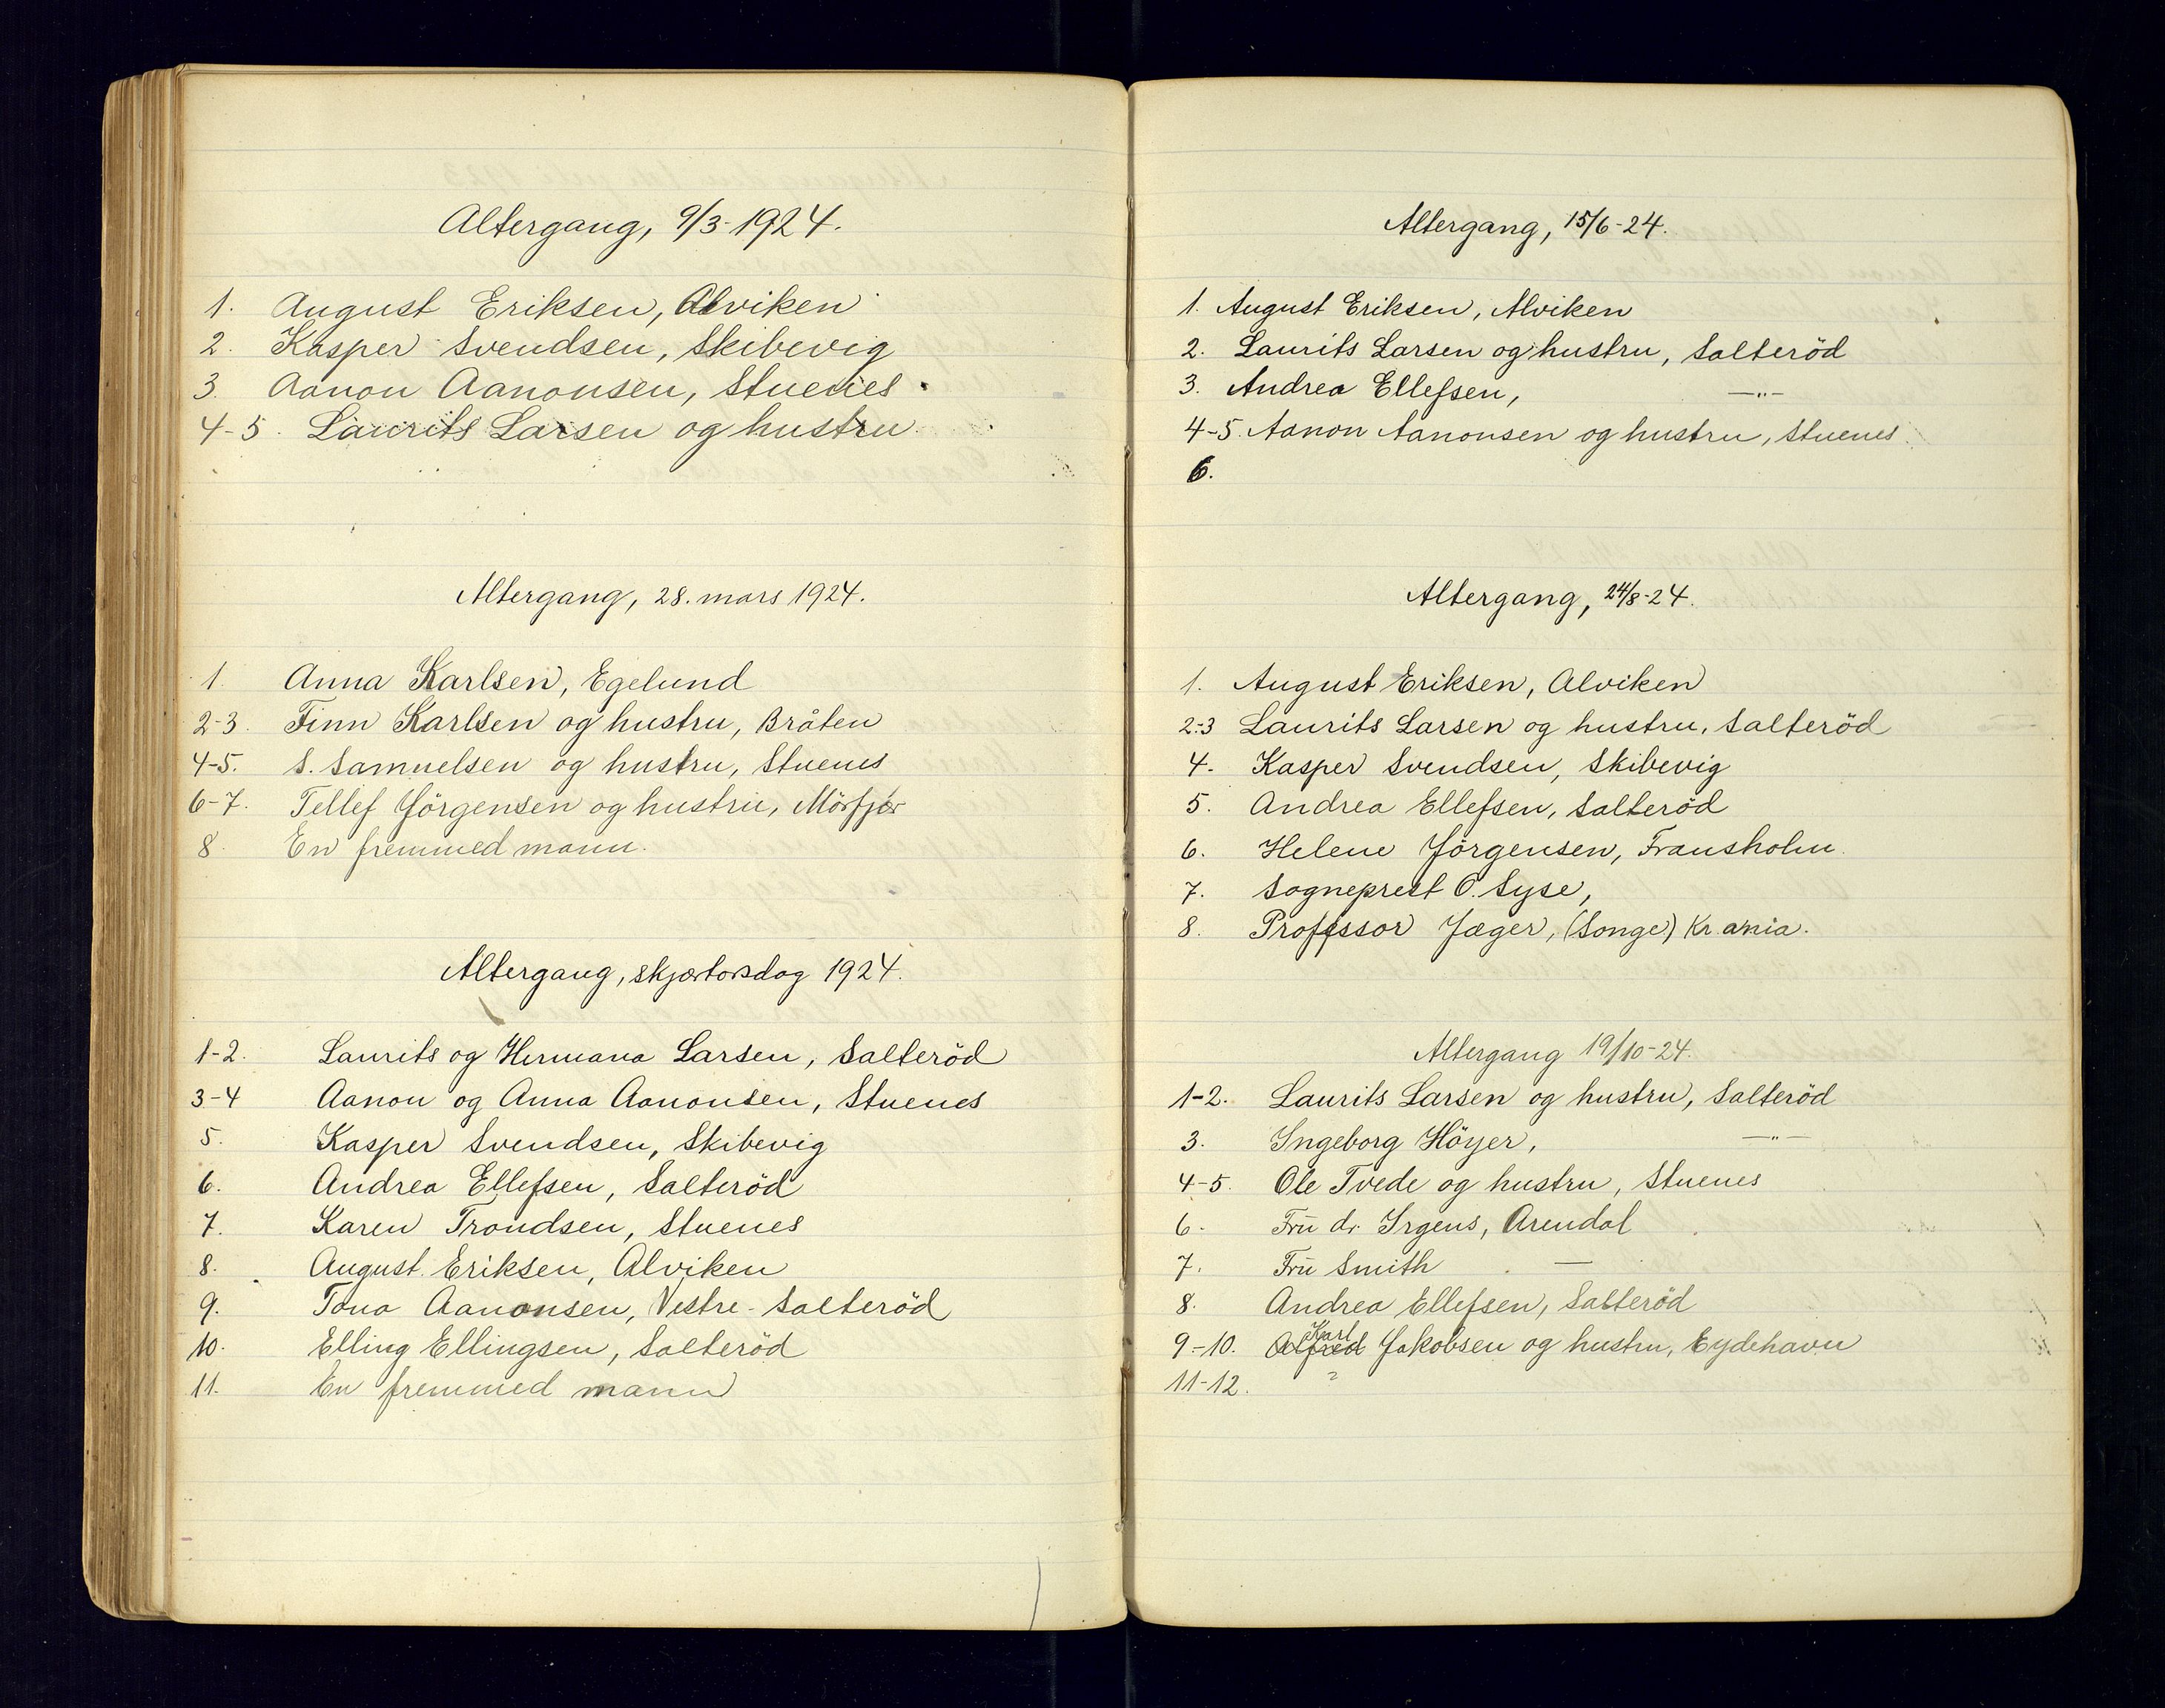 Altergang, 9/3-1924.
1. August Eriksen, Alviken
2. Kasper Svendsen, Skibevig
3. Aanon Aanonsen, Stuenes
4-5. Laurits Larsen og hustru.
Altergang, 28. mars 1924.
1. Anna Karlsen, Egelund
2-3. Finn Karlsen og hustru, Bråten
4-5. S. Samuelsen og hustru, Stuenes
6-7. Tellef Jörgensen og hustru, Mörfjær
8. En fremmed mann.
Altergang, skjærtorsdag 1924.
1-2. Laurits og Hermana Larsen, Salteröd
3-4 Aanon og Anna Aanonsen, Stuenes
5. Kasper Svendsen, Skibevig
6. Andrea Ellefsen, Salteröd
7. Karen Trondsen, Stuenes
8. August Eriksen, Alviken
9. Tona Aanonsen, Vestre-Salteröd
10. Elling Ellingsen, Salteröd
11. En fremmed mann
Altergang, 15/6-24.
1. August Eriksen, Alviken
2. Laurits Larsen og hustru, Salteröd
3. Andrea Ellefsen, —"—
4-5. Aanon Aanonsen og hustru, Stuenes.
6.
Altergang, 24/8-24.
1. August Eriksen, Alviken
2-3 Laurits Larsen og hustru, Salteröd
4. Kasper Svendsen, Skibevig
5. Andrea Ellefsen, Salteröd
6. Helene Jörgensen, Fransholm.
7. Sogneprest O. Syse,
8. Professor Jæger, (Songe) Kr.ania.
Altergang 19/10-24.
1-2. Laurits Larsen og hustru, Salteröd
3. Ingeborg Höyer, —"—
4-5. Ole Tvede og hustru, Stuenes
6. Fru dr. Irgens, Arendal
7. Fru Smith —
8. Andrea Ellefsen, Salteröd
9-10. Alfred Karl Jakobsen og hustru, Eydehavn
11-12. "